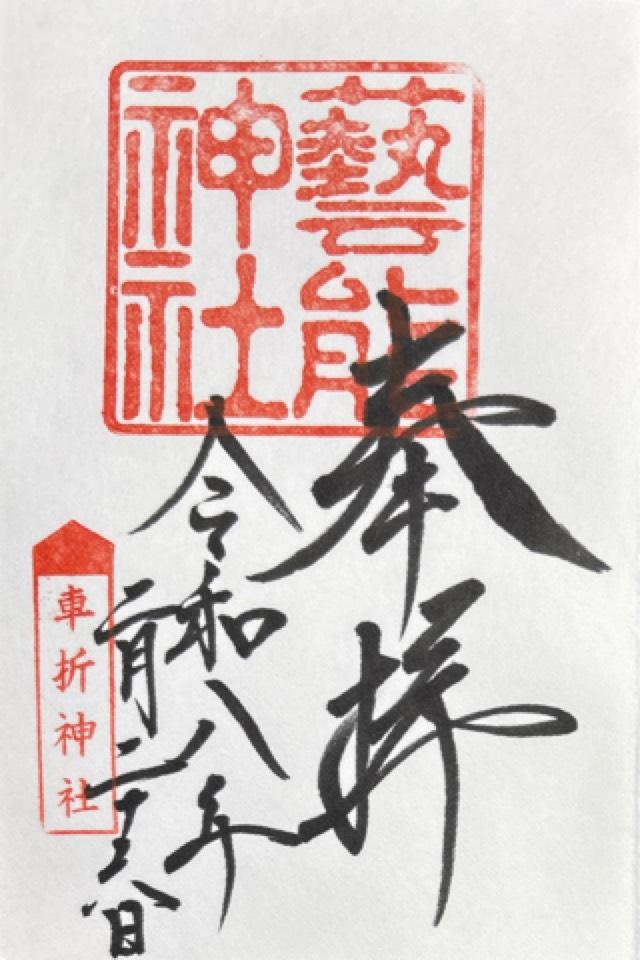 藝能
神社
奉拝
令和八年
二月二十六日
車折神社